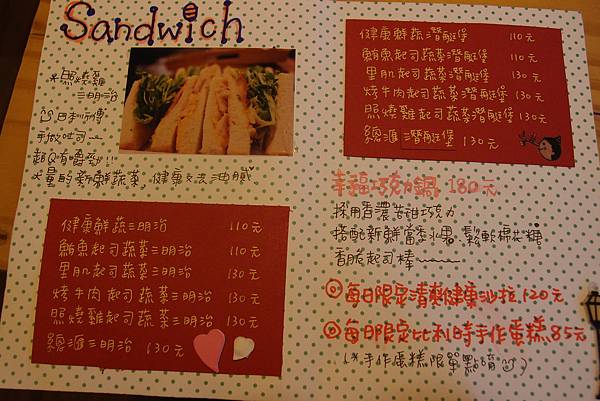 Sandwich
*照燒雞
三明治
日本師傅
手做吐司~
超Q有嚼勁!!
大量的新鮮蔬菜,健康又去油膩
健康鮮蔬三明治 110元
鮪魚起司蔬菜三明治 110元
里肌起司蔬菜三明治 130元
烤牛肉起司蔬菜三明治 130元
照燒雞起司蔬菜三明治 130元
總滙三明治 130元
健康鮮蔬潛艇堡 110元
鮪魚起司蔬菜潛艇堡 110元
里肌起司蔬菜潛艇堡 130元
烤牛肉起司蔬菜潛艇堡 130元
照燒雞起司蔬菜潛艇堡 130元
總滙潛艇堡 130元
幸福巧克力鍋 180元
採用香濃苦甜巧克力
搭配新鮮當季水果、鬆軟棉花糖
香脆起司棒~~~
◎每日限定清爽健康沙拉120元
◎每日限定比利時手作蛋糕85元
(*手作蛋糕限單點唷)